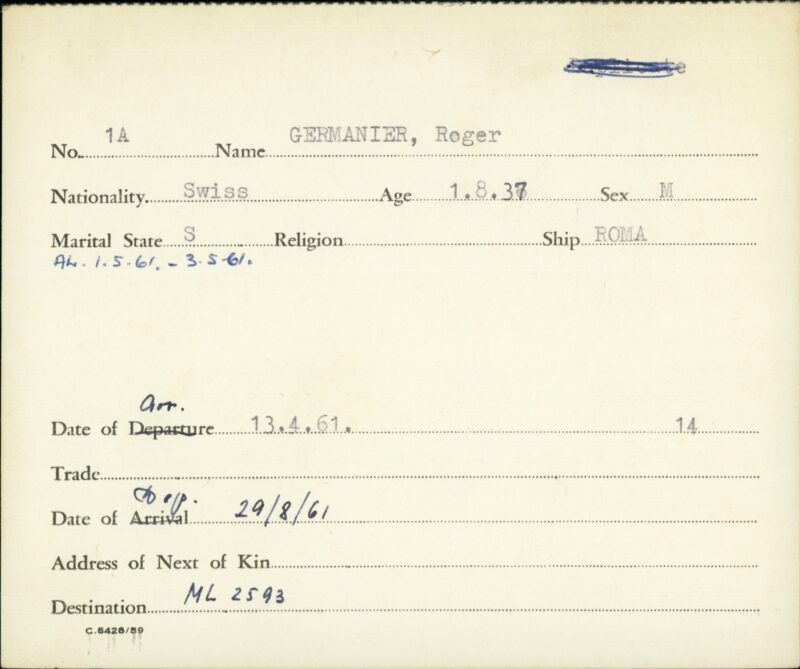 No. 1A Name GERMANIER, Roger
Nationality. Swiss Age 1.8.37 Sex M
Marital State S Religion Ship ROMA
AL. 1.5.61. - 3.5.61.
Arr.
Date of Departure 13.4.61. 14
Trade
Dep.
Date of Arrival 29/8/61
Address of Next of Kin
Destination ML 2593
C.8428/59